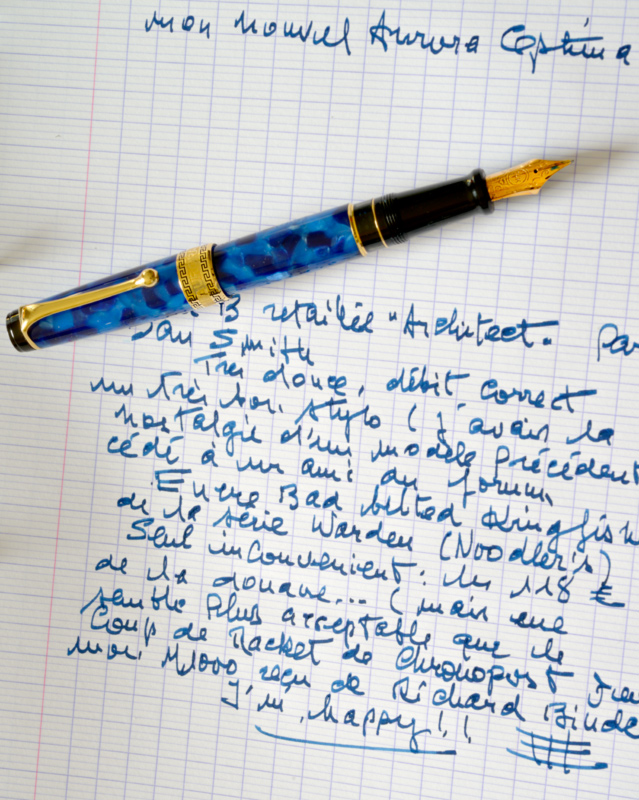 mon nouvel Aurora Optima
B retaillée "Architect". Par
Dan Smith
Très douce, débit correct
un très bon stylo (j'avais la
nostalgie d'un modèle précédent
cédé à un ami du forum
Encre Bad belted Kingfish
de la série Warden (Noodler's)
Seul inconvenient: les 118 €
de la douane... (mais cne
semble plus acceptable que le
Coup de Racket de Chronopost
mon M1000 reçu de Richard Binde
I'm happy!!